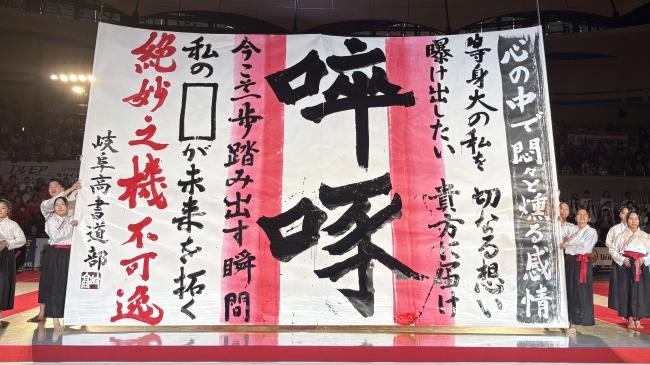 心の中で悶々と燻る感情
等身大の私を 切なる想い
曝け出したい 貴方に届け
啐啄
今こそ一歩踏み出す瞬間
私の□が未来を拓く
絶妙之機不可逸
岐阜高書道部